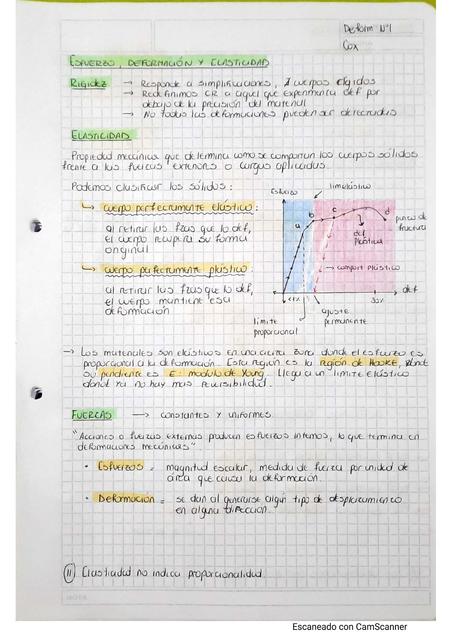 Deform N°1
Cox
ESFUERZO, DEFORMACIÓN Y ELASTICIDAD
RIGIDEZ → Responde a simplificaciones, cuerpos rígidos
→ Redefinimos CR a aquel que experimenta def por
debajo de la precisión del material
→ No todas las deformaciones pueden ser detectadas
ELASTICIDAD
Propiedad mecánica que determina como se comportan los cuerpos sólidos
frente a las fuerzas exteriores o cargas aplicadas.
Podemos clasificar los sólidos:
↳ cuerpo perfectamente elástico:
al retirar las fzas que lo def,
el cuerpo recupera su forma
original
↳ cuerpo perfectamente plástico:
al retirar las fzas que lo def,
el cuerpo mantiene esa
deformación
Esfuerzo
lim elástico
a
b
c
d
punto de
fractura
def
Plástica
→ comport plástico
<1%
30%
def
límite
proporcional
ajuste
permanente
→ Los materiales son elásticos en una cierta zona donde el esfuerzo es
proporcional a la deformación. Esta región es la región de HOOKE, donde
su pendiente es E: módulo de Young. Llega a un "límite elástico"
donde ya no hay mas reversibilidad.
FUERZAS → constantes y uniformes
"Acciones o fuerzas externas producen esfuerzos internos, lo que termina en
deformaciones mecánicas".
• Esfuerzos = magnitud escalar, medida de fuerza por unidad de
área que causa la deformación.
• Deformación = se dan al generarse algún tipo de desplazamiento
en alguna dirección.
!! Elasticidad no indica proporcionalidad
Escaneado con CamScanner